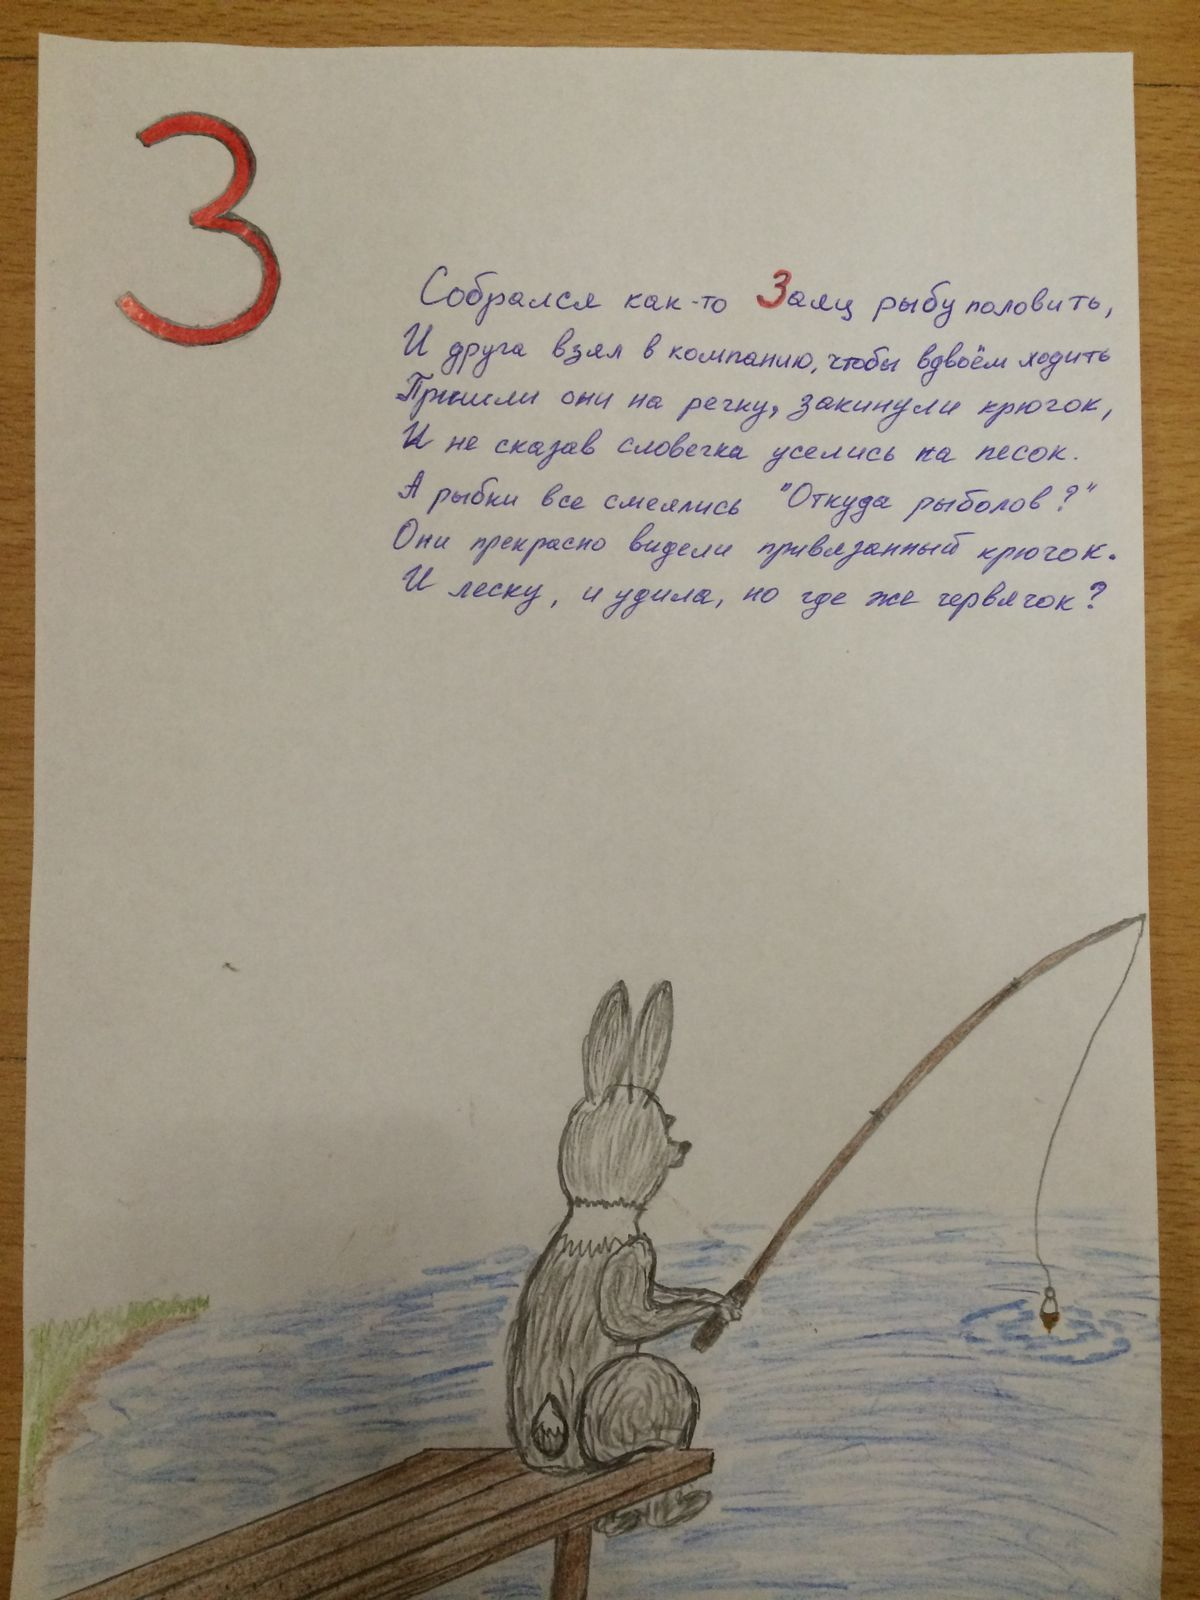 З
Собрался как-то Заяц рыбу половить,
И друга взял в компанию, чтобы вдвоём ходить
Пришли они на речку, закинули крючок,
И не сказав словечка уселись на песок.
А рыбки все смеялись "Откуда рыболов?"
Они прекрасно видели привязанный крючок.
И леску, и удила, но где же червячок?